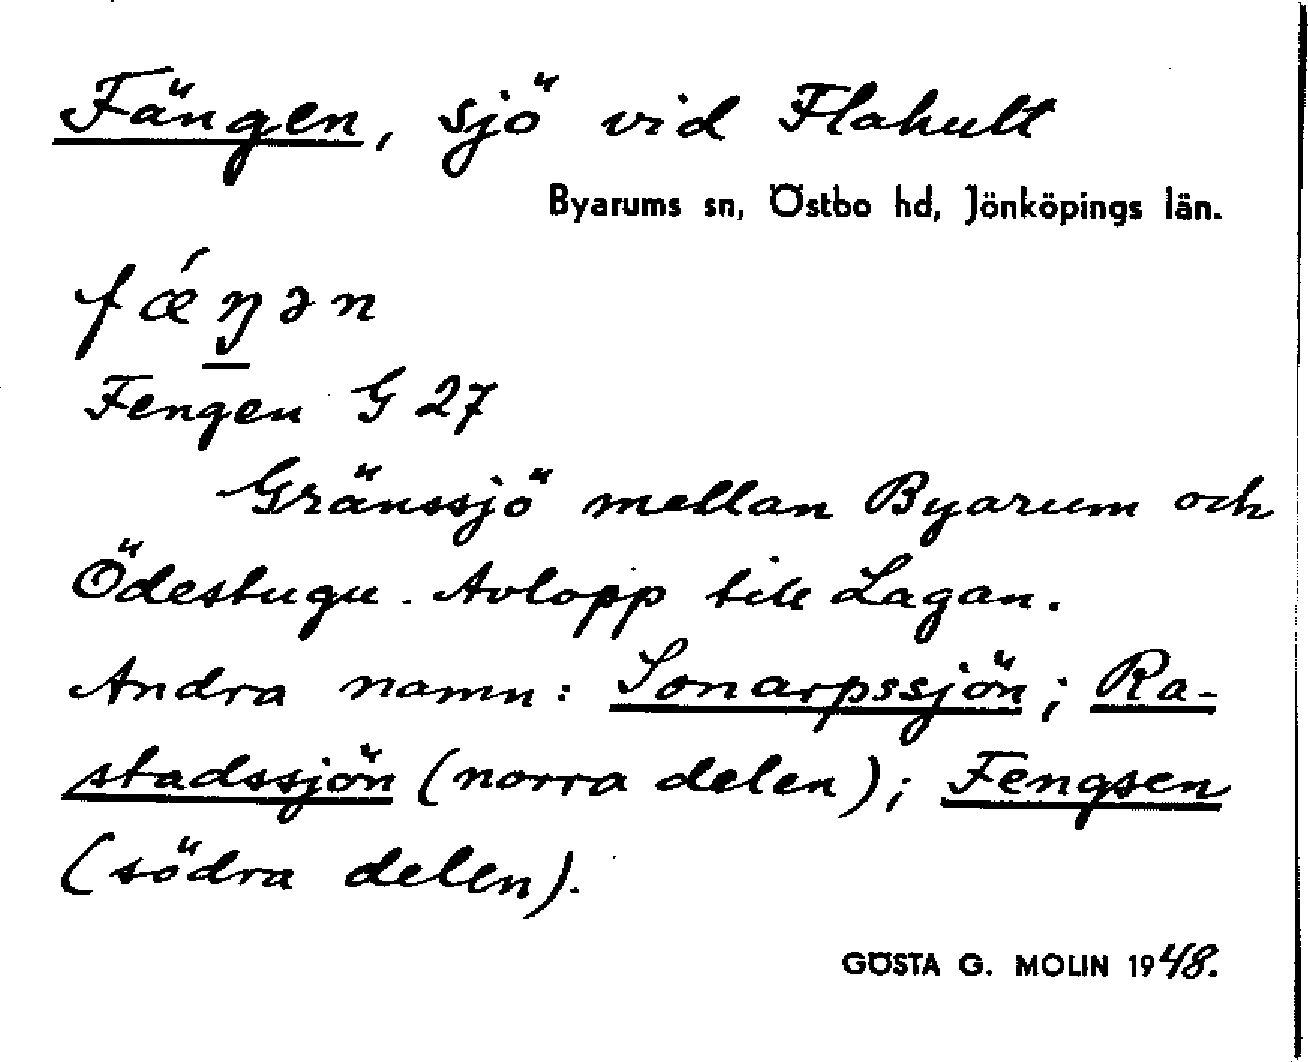 Fängen, sjö vid Flahult
Byarums sn, Östbo hd, Jönköpings län.
fǽŋ̲ən
Fengen G 27
Gränssjö mellan Byarum och
Ödestugu. Avlopp till Lagan.
Andra namn: Sonarpssjön; Ra-
stadssjön (norra delen); Fengsen
(södra delen).
GÖSTA G. MOLIN 1948.